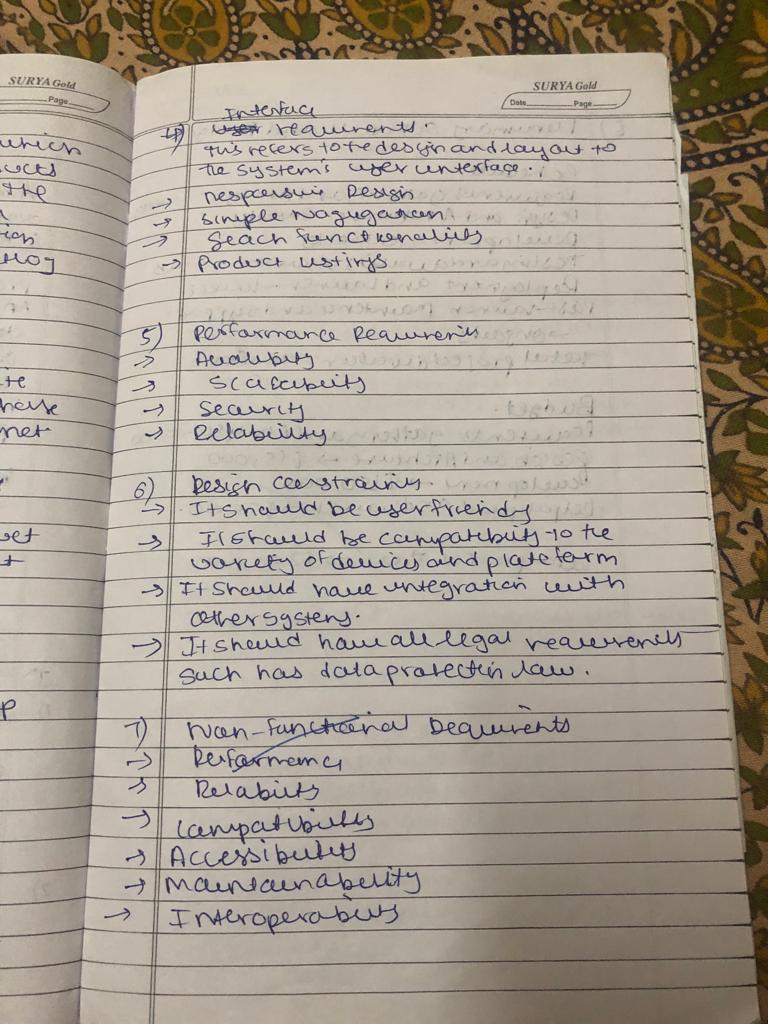 SURYA Gold
Page
which
ucts
the
ion
ite
net
SURYA Gold
Date Page
Interface
4) User requirments.
this refers to the design and layout to
the system's user interface.
→ Responsive Design
→ Simple Navigation
→ Seach functionality
→ Product listings
5) Performance Requirements
→ Availibity
→ Scalability
→ Security
→ Relability
6) Design constrainy.
→ It should be userfriendy
→ It should be compatibity to the
variety of devices and plateform
→ It should have integration with
other systems.
→ It should have all legal requirements
such has data protection law.
7) Non-functional Requirements
→ Performance
→ Relability
→ Compatibility
→ Accessibility
→ Maintainability
→ Interoperability